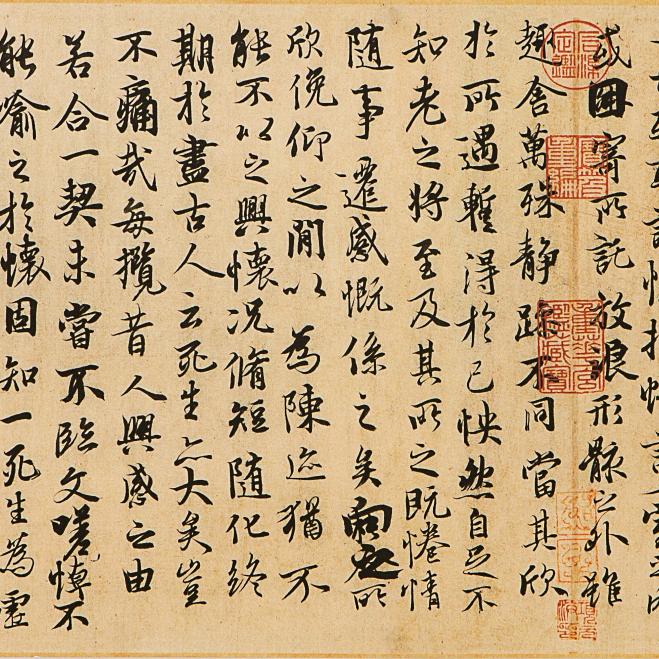 或因寄所託放浪形骸之外雖
趣舍萬殊静躁不同當其欣
於所遇蹔得於己怏然自足不
知老之將至及其所之既惓情
隨事遷感慨係之矣向之所
欣俛仰之閒以為陳迹猶不
能不以之興懷況脩短隨化終
期於盡古人云死生亦大矣豈
不痛哉每攬昔人興感之由
若合一契未嘗不臨文嗟悼不
能喻之於懷固知一死生為虛